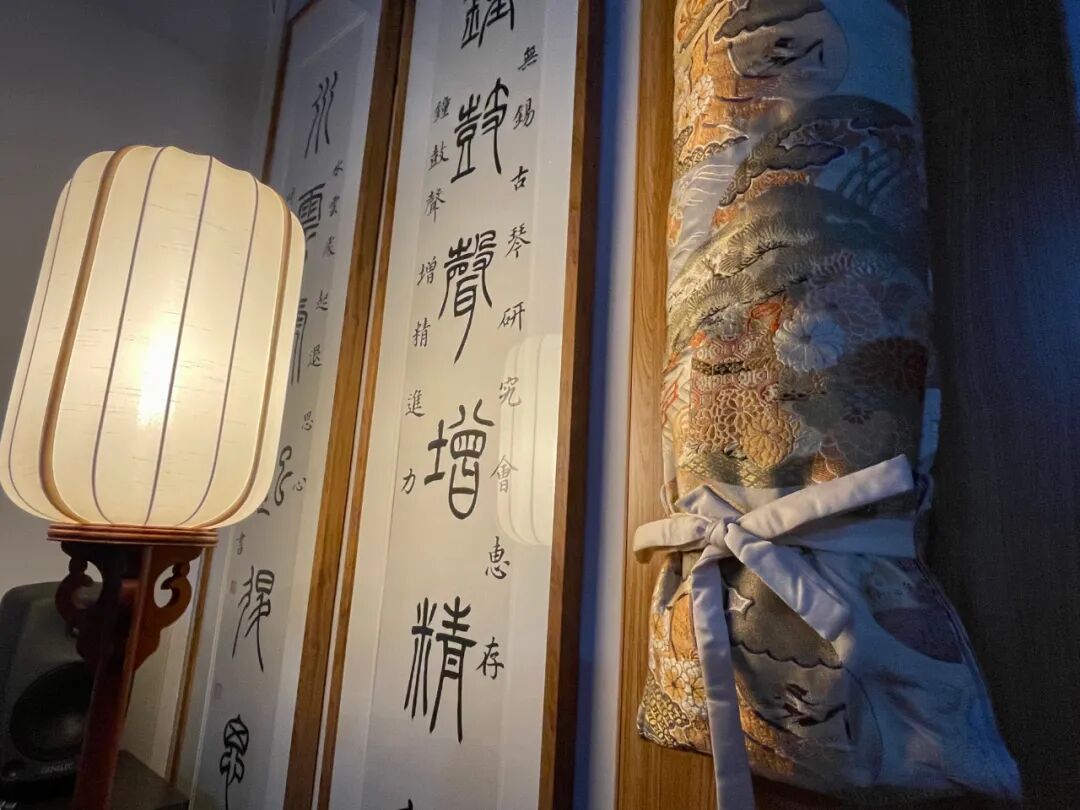 無錫古琴研究會惠存
鐘鼓聲增精
鐘鼓聲增精進力
水雲起退思心
水雲起退思
書
GENELEC